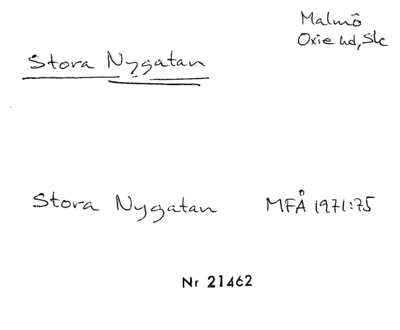 Malmö
Oxie hd, Sk
Stora Nygatan
Stora Nygatan MFÅ 1971:75
Nr 21462